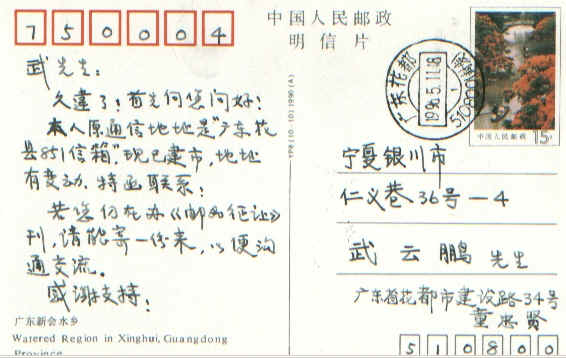 750004
中国人民邮政
明信片
武先生：
久违了！首先向您问好！
本人原通信地址是“广东花
县851信箱”，现已建市，地址
有变动，特函联系！
若您仍在办《邮知征让》
刊，请能寄一份来，以便沟
通交流。
感谢支持！
广东新会水乡
Watered Region in Xinghui, Guangdong
Province
YP8 (10-10) 1990 (A)
广东花都
1996.5.11.18
510800
中国人民邮政
15分
宁夏银川市
仁义巷36号－4
武云鹏 先生
广东省花都市建设路34号
童忠贤
510800